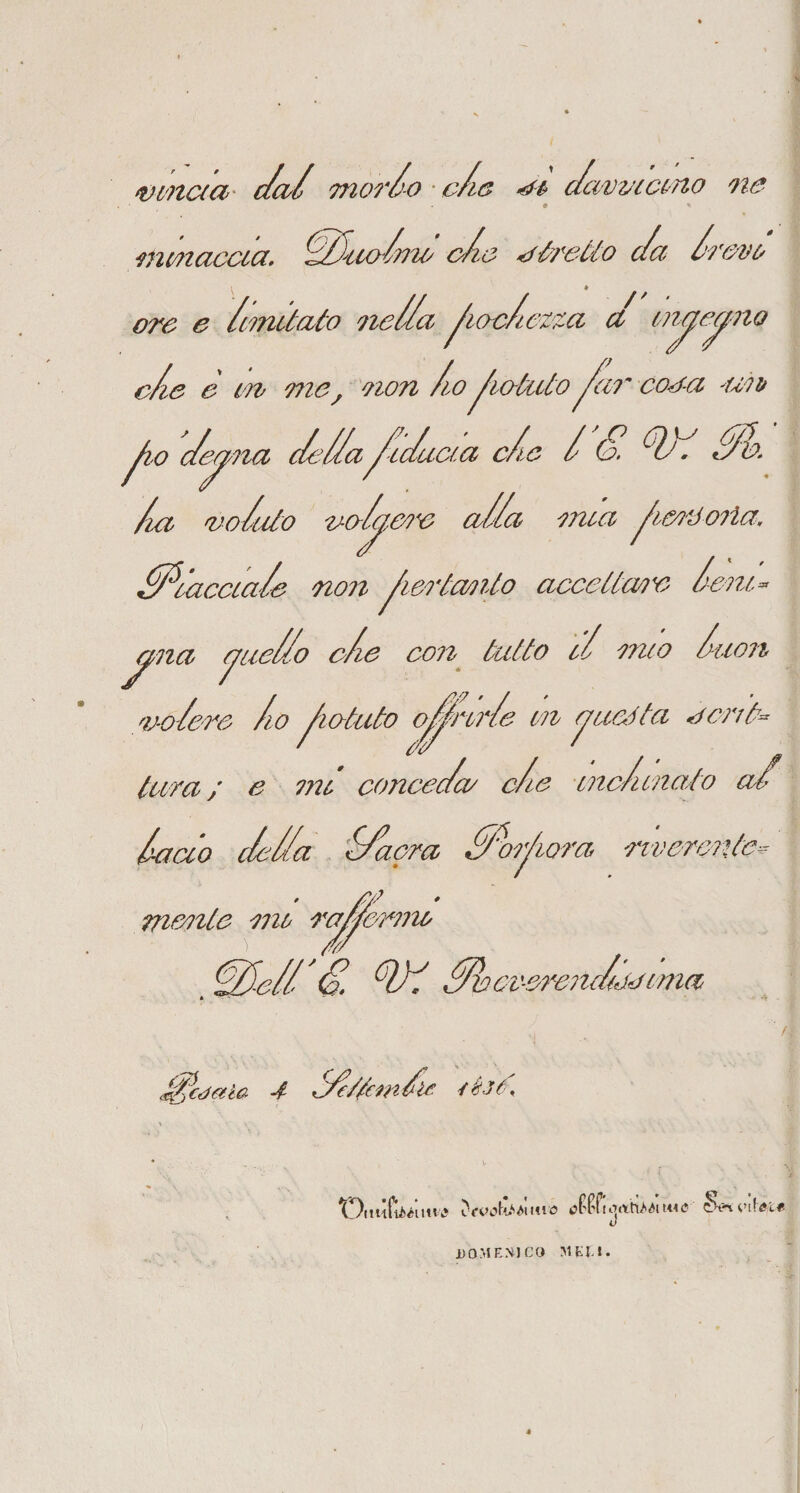 vincia dal morbo che sì davvicino ne
minaccia. Duolmi che stretto da brevi
ore e limitato nella pochezza d'ingegno
che è in me, non ho potuto far cosa un
pò degna della fiducia che l'E. V. R.
ha voluto volgere alla mia persona.
Piacciale non pertanto accettare beni=
gna quello che con tutto il mio buon
volere ho potuto offrirle in questa scrit=
tura; e mi conceda che inchinato al
bacio della Sacra Porpora riverente=
mente mi raffermi
Dell'E. V. Reverendissima
Pesaro 4 Settembre 1836.
Umilissimo Devotissimo obbligatissimo Servitore
DOMENICO MELI.